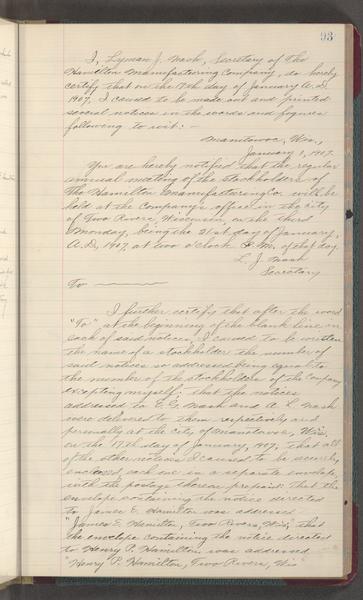 93
I, Lyman J. Nash, Secretary of The
Hamilton Manufacturing Company, do hereby
certify that on the 17th day of January A. D.
1907, I caused to be made out and printed
several notices in the words and figures
following to wit: -
Manitowoc, Wis.,
January 1, 1907.
You are hereby notified that the regular
annual meeting of the stockholders of
The Hamilton Manufacturing Co. will be
held at the Company's office in the city
of Two Rivers, Wisconsin, on the third
Monday, being the 21st day of January,
A. D., 1907, at two o'clock P. M. of that day.
L. J. Nash
Secretary
To
I further certify that after the word
"To" at the beginning of the blank line on
each of said notices, I caused to be written
the name of a stockholder the number of
said notices so addressed being equal to
the number of the stockholders of the Company
excepting myself; that the notices
addressed to E. G. Nash and A. L. Nash
were delivered to them respectively and
personally at the city of Manitowoc, Wis.,
on the 17th day of January, 1907, that all
of the other notices I caused to be securely
enclosed, each one in a separate envelope
with the postage thereon prepaid; that the
envelope containing the notice directed
to James E. Hamilton was addressed
"James E. Hamilton, Two Rivers, Wis; that
the envelope containing the notice directed
to Henry P. Hamilton, was addressed
"Henry P. Hamilton, Two Rivers, Wis"